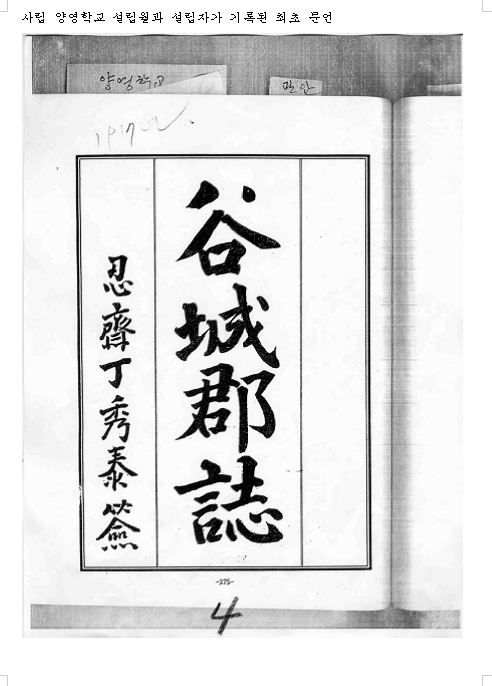 사립 양영학교 설립월과 설립자가 기록된 최초 문언
양영학교
谷城郡誌
忍齋丁秀泰簽
4